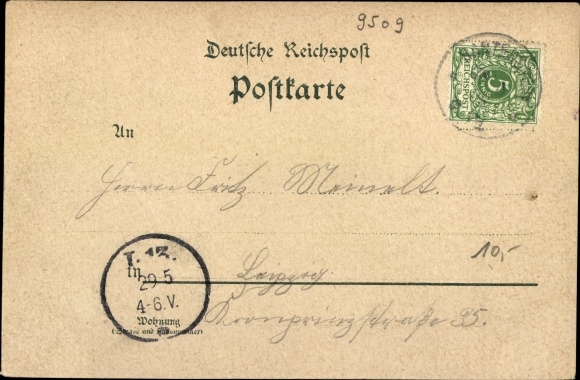 9509
Deutsche Reichspost
Postkarte
REICHSPOST
5
An
Herrn Fritz Meinelt.
10,-
in Leipzig
29 5
4-6.V.
Kronprinzstraße 35.
Wohnung
(Straße und Hausnummer)